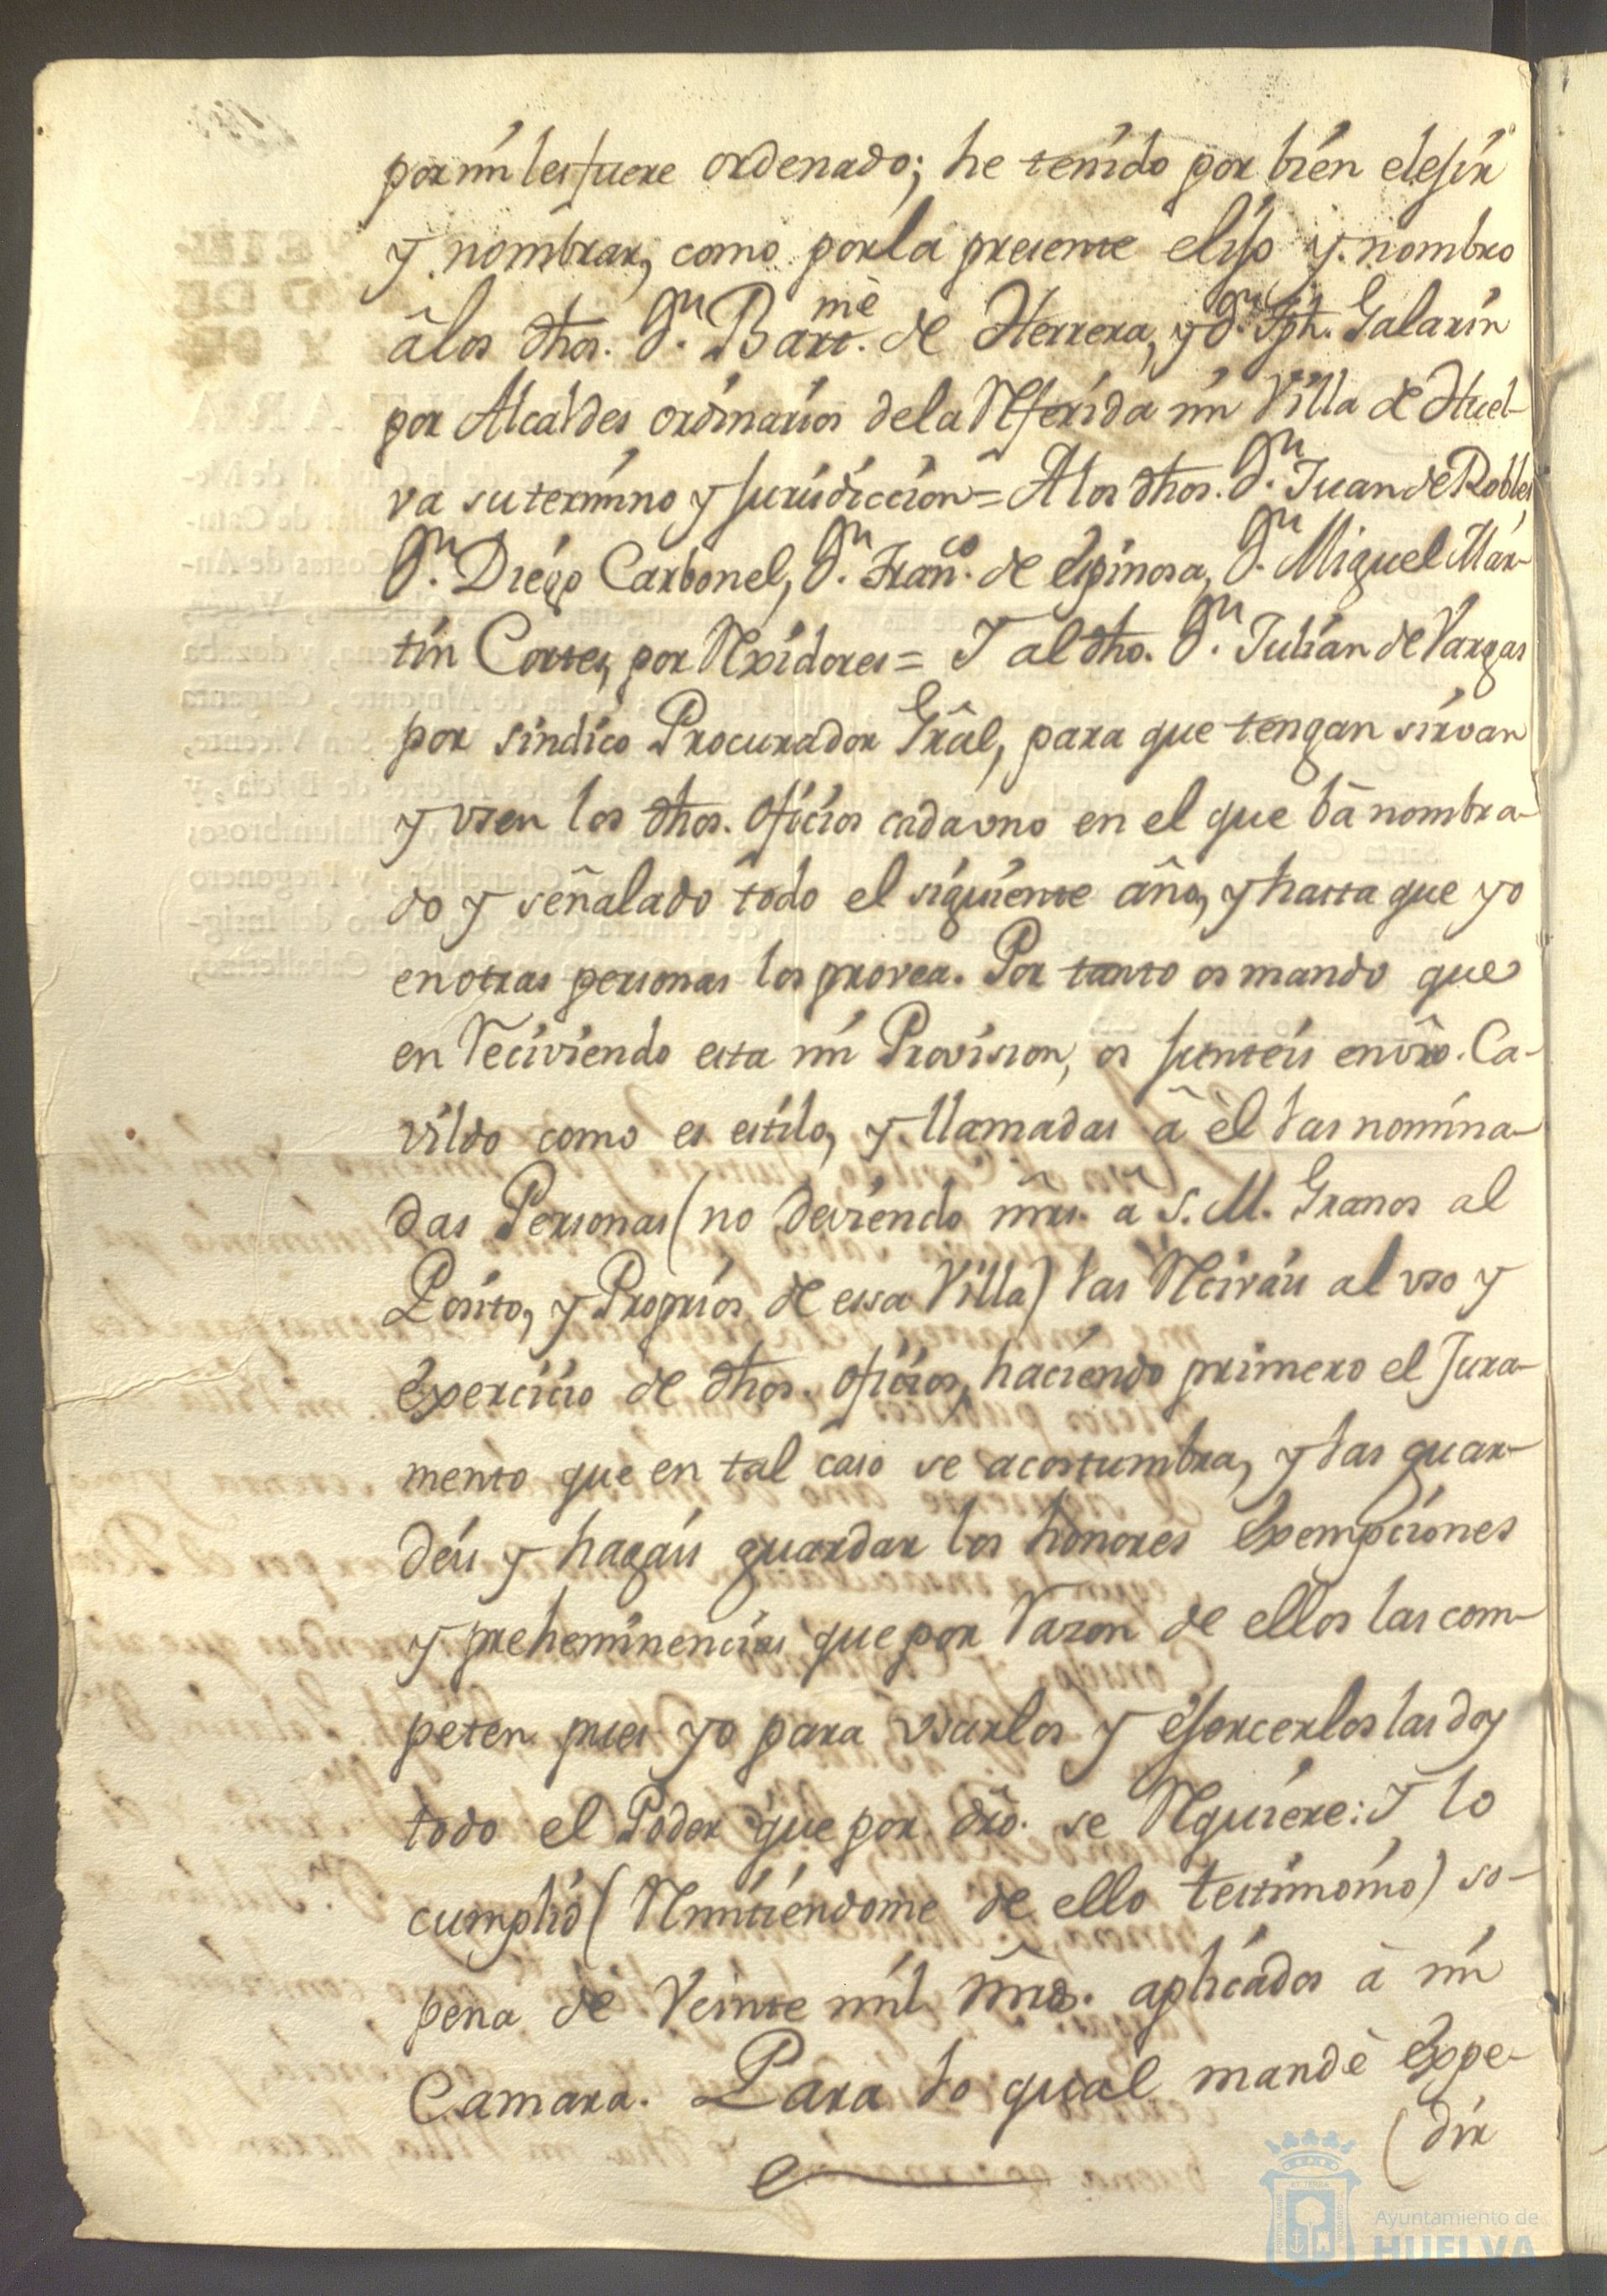 por mi les fuere ordenado; he tenido por bien elejir
y nombrar, como por la presente elijo y nombro
â los dhos. Dn. Barme. de Herrera, y Dn. Jph. Galarin
por Alcaldes ordinarios de la Referida mi Villa de Huel-
va su termino y jurisdiccion = A los dhos. Dn. Juan de Robles,
Dn. Diego Carbonel, Dn. Franco. de Espinosa, Dn. Miguel Mar-
tin Cortes, por Rexidores = Y al dho. Dn. Julian de Vargas
por sindico Procurador Grâl, para que tengan sirvan
y usen los dhos. oficios cada uno en el que bâ nombra-
do y señalado todo el siguiente año, y hasta que yo
en otras personas los provea. Por tanto os mando que
en Reciviendo esta mi Provision, os junteis en vrô. Ca-
vildo como es estilo, y llamadas â èl las nomina-
das Personas (no deviendo mrs. â S. M. Granos al
Posito, y Proprios de essa Villa) las Recivais al uso y
exercicio de dhos. oficios, haciendo primero el Jura-
mento que en tal caso se acostumbra, y las guar-
deis y hagais guardar los honores exempciones
y preheminencias que por Razon de ellos las com-
peten pues yo para usarlos y ejercerlos las doy
todo el Poder que por drô. se Requiere: Y lo
cumplid (Remitiendome de ello testimonio) so-
pena de Veinte mil mrs. aplicados â mi
Camara. Para lo qual mandè expe-
(dir
Ayuntamiento de
HUELVA